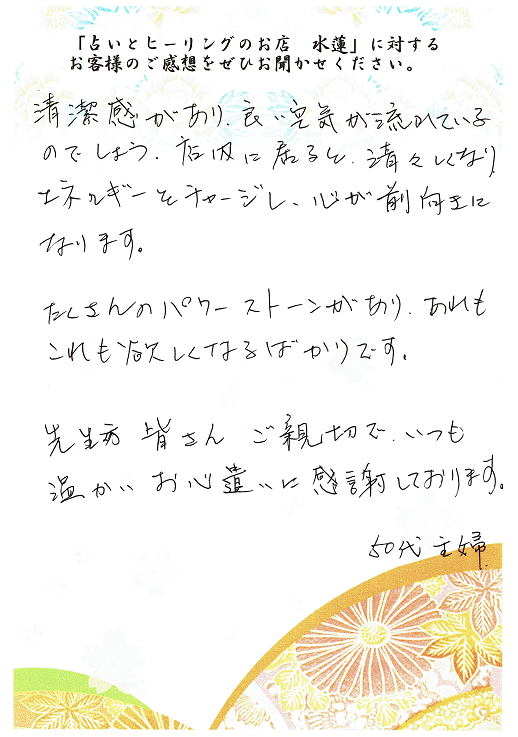 「占いとヒーリングのお店　水蓮」に対する
お客様のご感想をぜひお聞かせください。
清潔感があり、良い空気が流れている
のでしょう。店内に居ると、清々しくなり
エネルギーをチャージし、心が前向きに
なります。
たくさんのパワーストーンがあり、あれも
これも欲しくなるばかりです。
先生方 皆さん ご親切で、いつも
温かい お心遣いに感謝しております。
50代 主婦